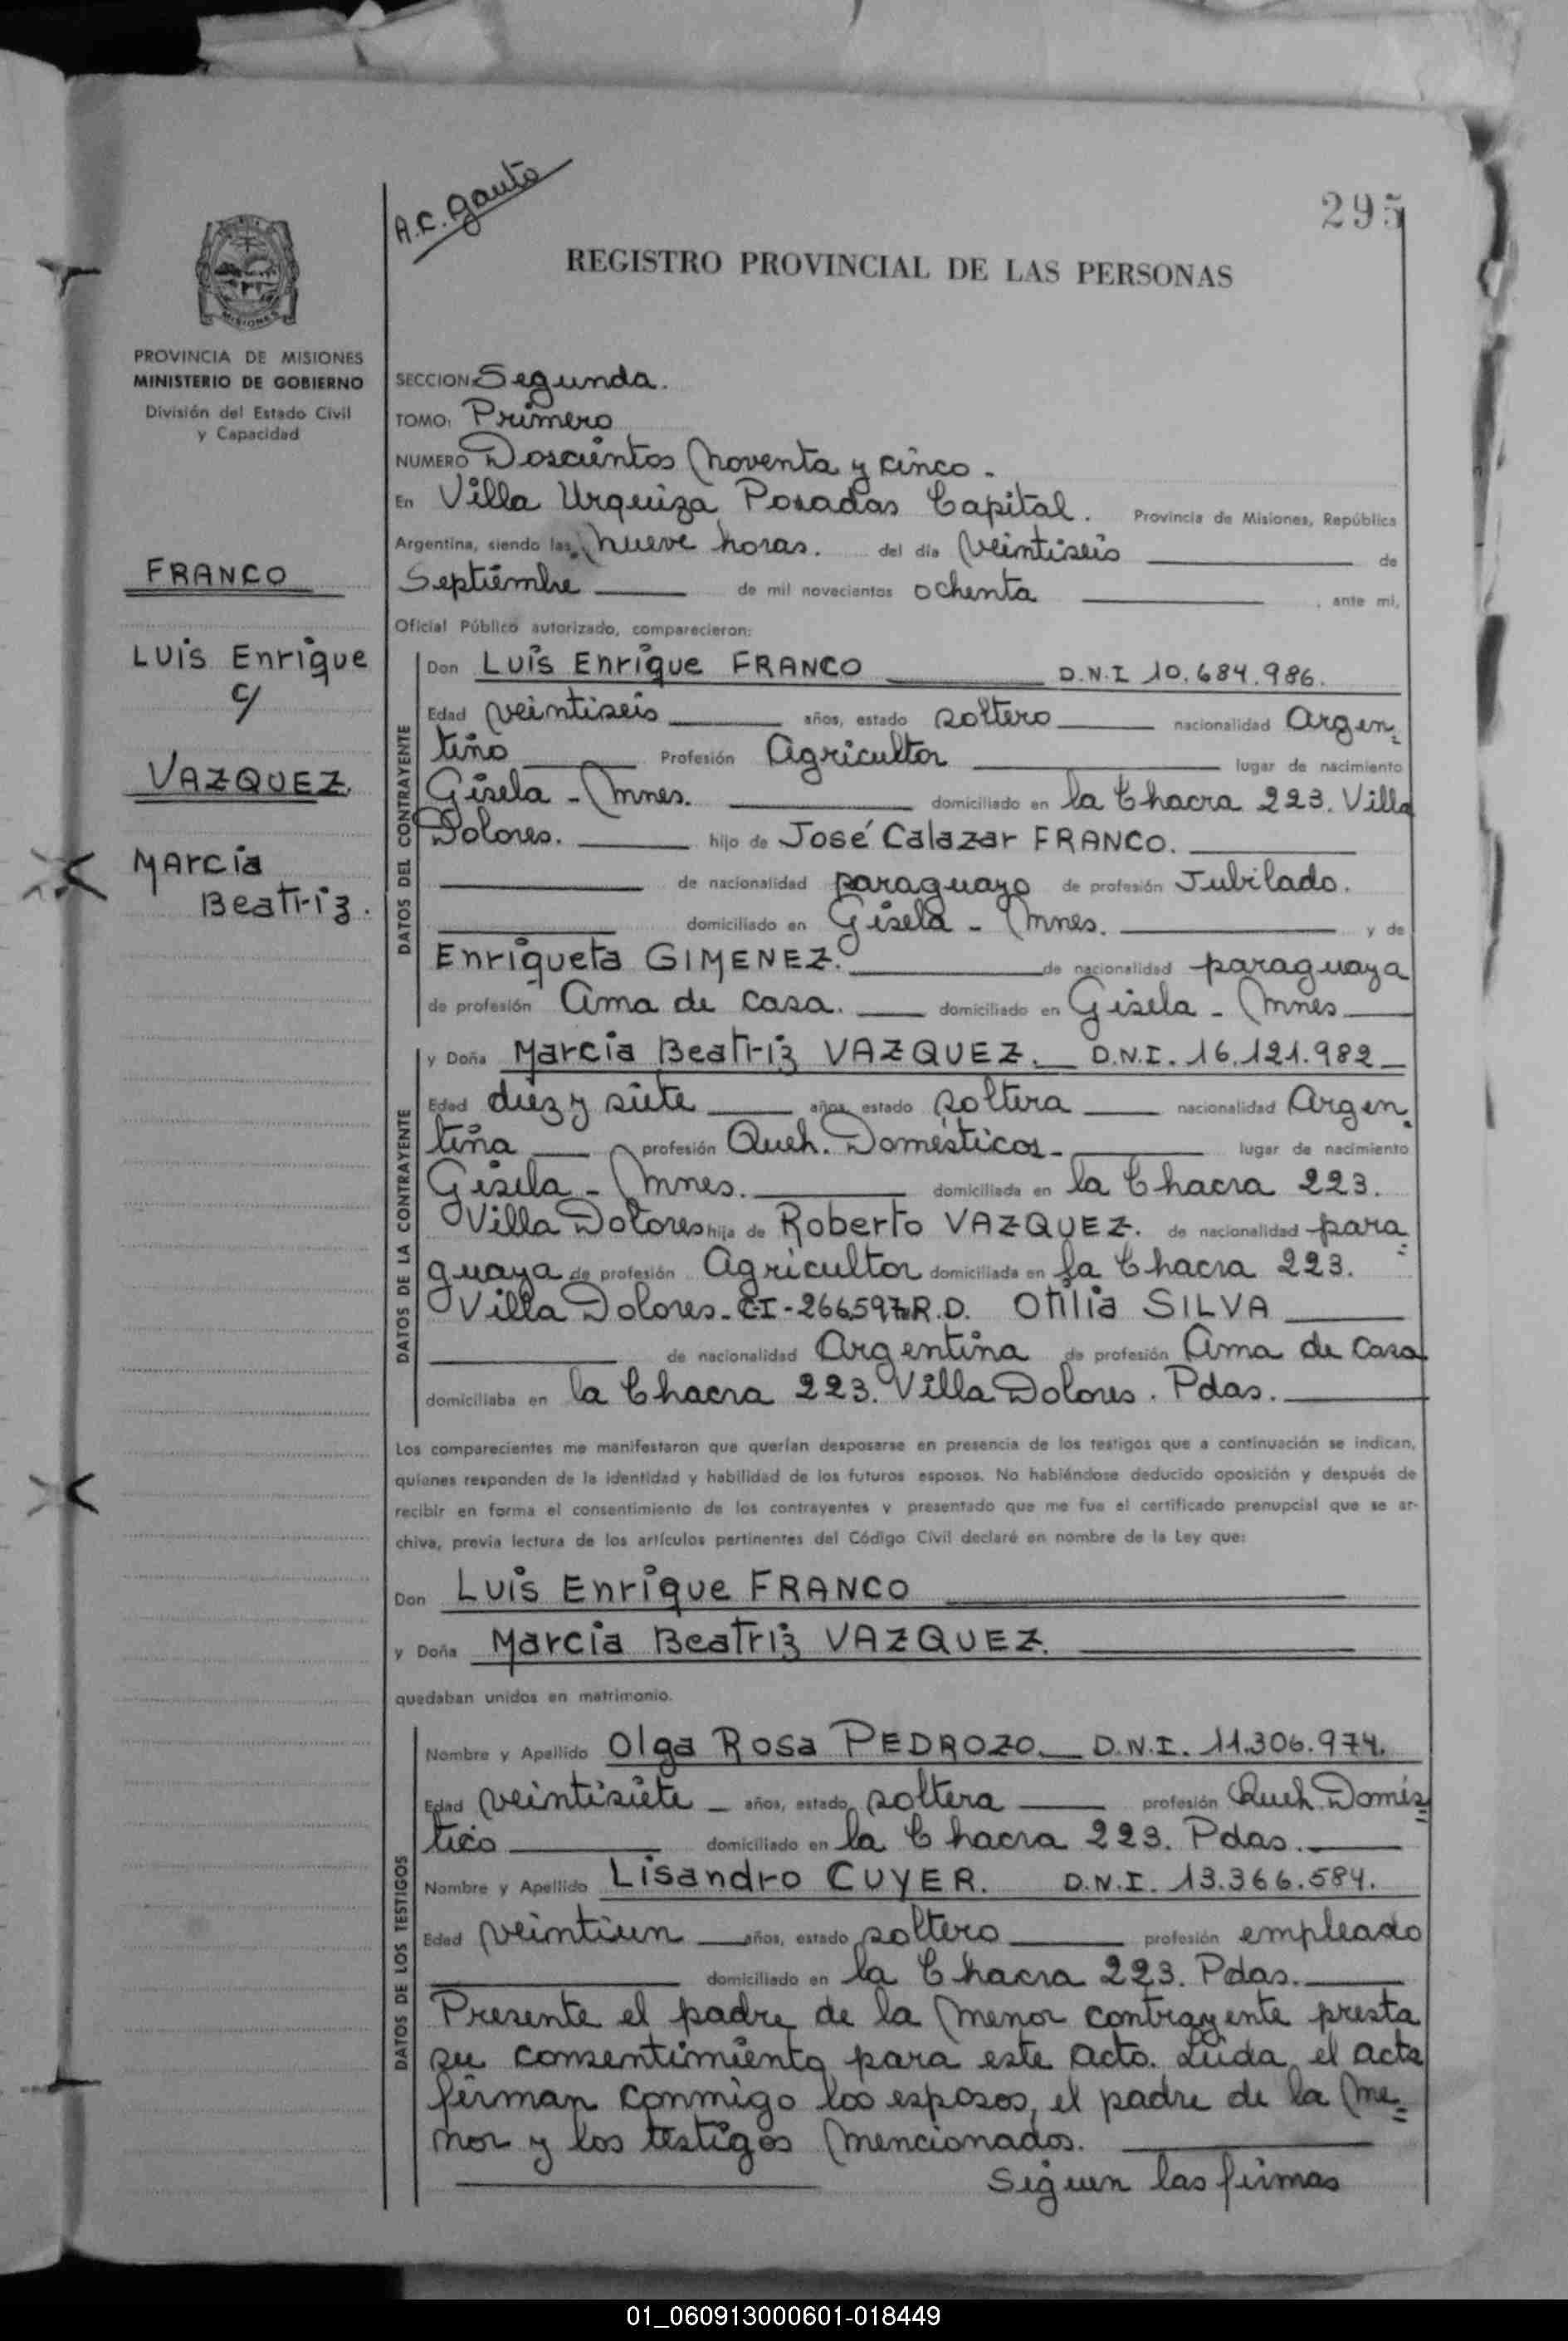 A.C. Gauto
295
REGISTRO PROVINCIAL DE LAS PERSONAS
MISIONES
PROVINCIA DE MISIONES
MINISTERIO DE GOBIERNO
División del Estado Civil
y Capacidad
FRANCO
Luis Enrique
c/
VAZQUEZ.
Marcia
Beatriz.
SECCION: Segunda.
TOMO: Primero
NUMERO Doscientos Noventa y cinco -
En Villa Urquiza Posadas Capital. Provincia de Misiones, República
Argentina, siendo las nueve horas. del día veintiseis de
Septiembre de mil novecientos ochenta , ante mi,
Oficial Público autorizado, comparecieron:
DATOS DEL CONTRAYENTE
Don Luis Enrique FRANCO D.N.I 10.684.986.
Edad veintiseis años, estado soltero nacionalidad Argen=
tino Profesión Agricultor lugar de nacimiento
Gisela - Mnes. domiciliado en la Chacra 223. Villa
Dolores. hijo de José Calazar FRANCO.
de nacionalidad paraguayo de profesión Jubilado.
domiciliado en Gisela - Mnes. y de
Enriqueta GIMENEZ. de nacionalidad paraguaya
de profesión Ama de casa. domiciliado en Gisela - Mnes
DATOS DE LA CONTRAYENTE
y Doña Marcia Beatriz VAZQUEZ. D.N.I. 16.121.982
Edad diez y siete años, estado soltera nacionalidad Argen=
tina profesión Queh. Domésticos - lugar de nacimiento
Gisela - Mnes. domiciliada en la Chacra 223.
Villa Dolores hija de Roberto VAZQUEZ. de nacionalidad para=
guaya de profesión Agricultor domiciliada en la Chacra 223.
Villa Dolores - CI - 266597 R.D. Otilia SILVA
de nacionalidad Argentina de profesión Ama de casa
domiciliaba en la Chacra 223. Villa Dolores. Pdas.
Los comparecientes me manifestaron que querían desposarse en presencia de los testigos que a continuación se indican,
quienes responden de la identidad y habilidad de los futuros esposos. No habiéndose deducido oposición y después de
recibir en forma el consentimiento de los contrayentes y presentado que me fue el certificado prenupcial que se ar-
chiva, previa lectura de los artículos pertinentes del Código Civil declaré en nombre de la Ley que:
Don Luis Enrique FRANCO
y Doña Marcia Beatriz VAZQUEZ.
quedaban unidos en matrimonio.
DATOS DE LOS TESTIGOS
Nombre y Apellido Olga Rosa PEDROZO. D.N.I. 11.306.974.
Edad veintisiete años, estado soltera profesión Queh. Domés=
tico domiciliado en la Chacra 223. Pdas.
Nombre y Apellido Lisandro CUYER. D.N.I. 13.366.584.
Edad veintiun años, estado soltero profesión empleado
domiciliado en la Chacra 223. Pdas.
Presente el padre de la menor contrayente presta
su consentimiento para este acto. Leida el acta
firman conmigo los esposos, el padre de la me=
nor y los testigos mencionados.
Siguen las firmas
01_060913000601-018449